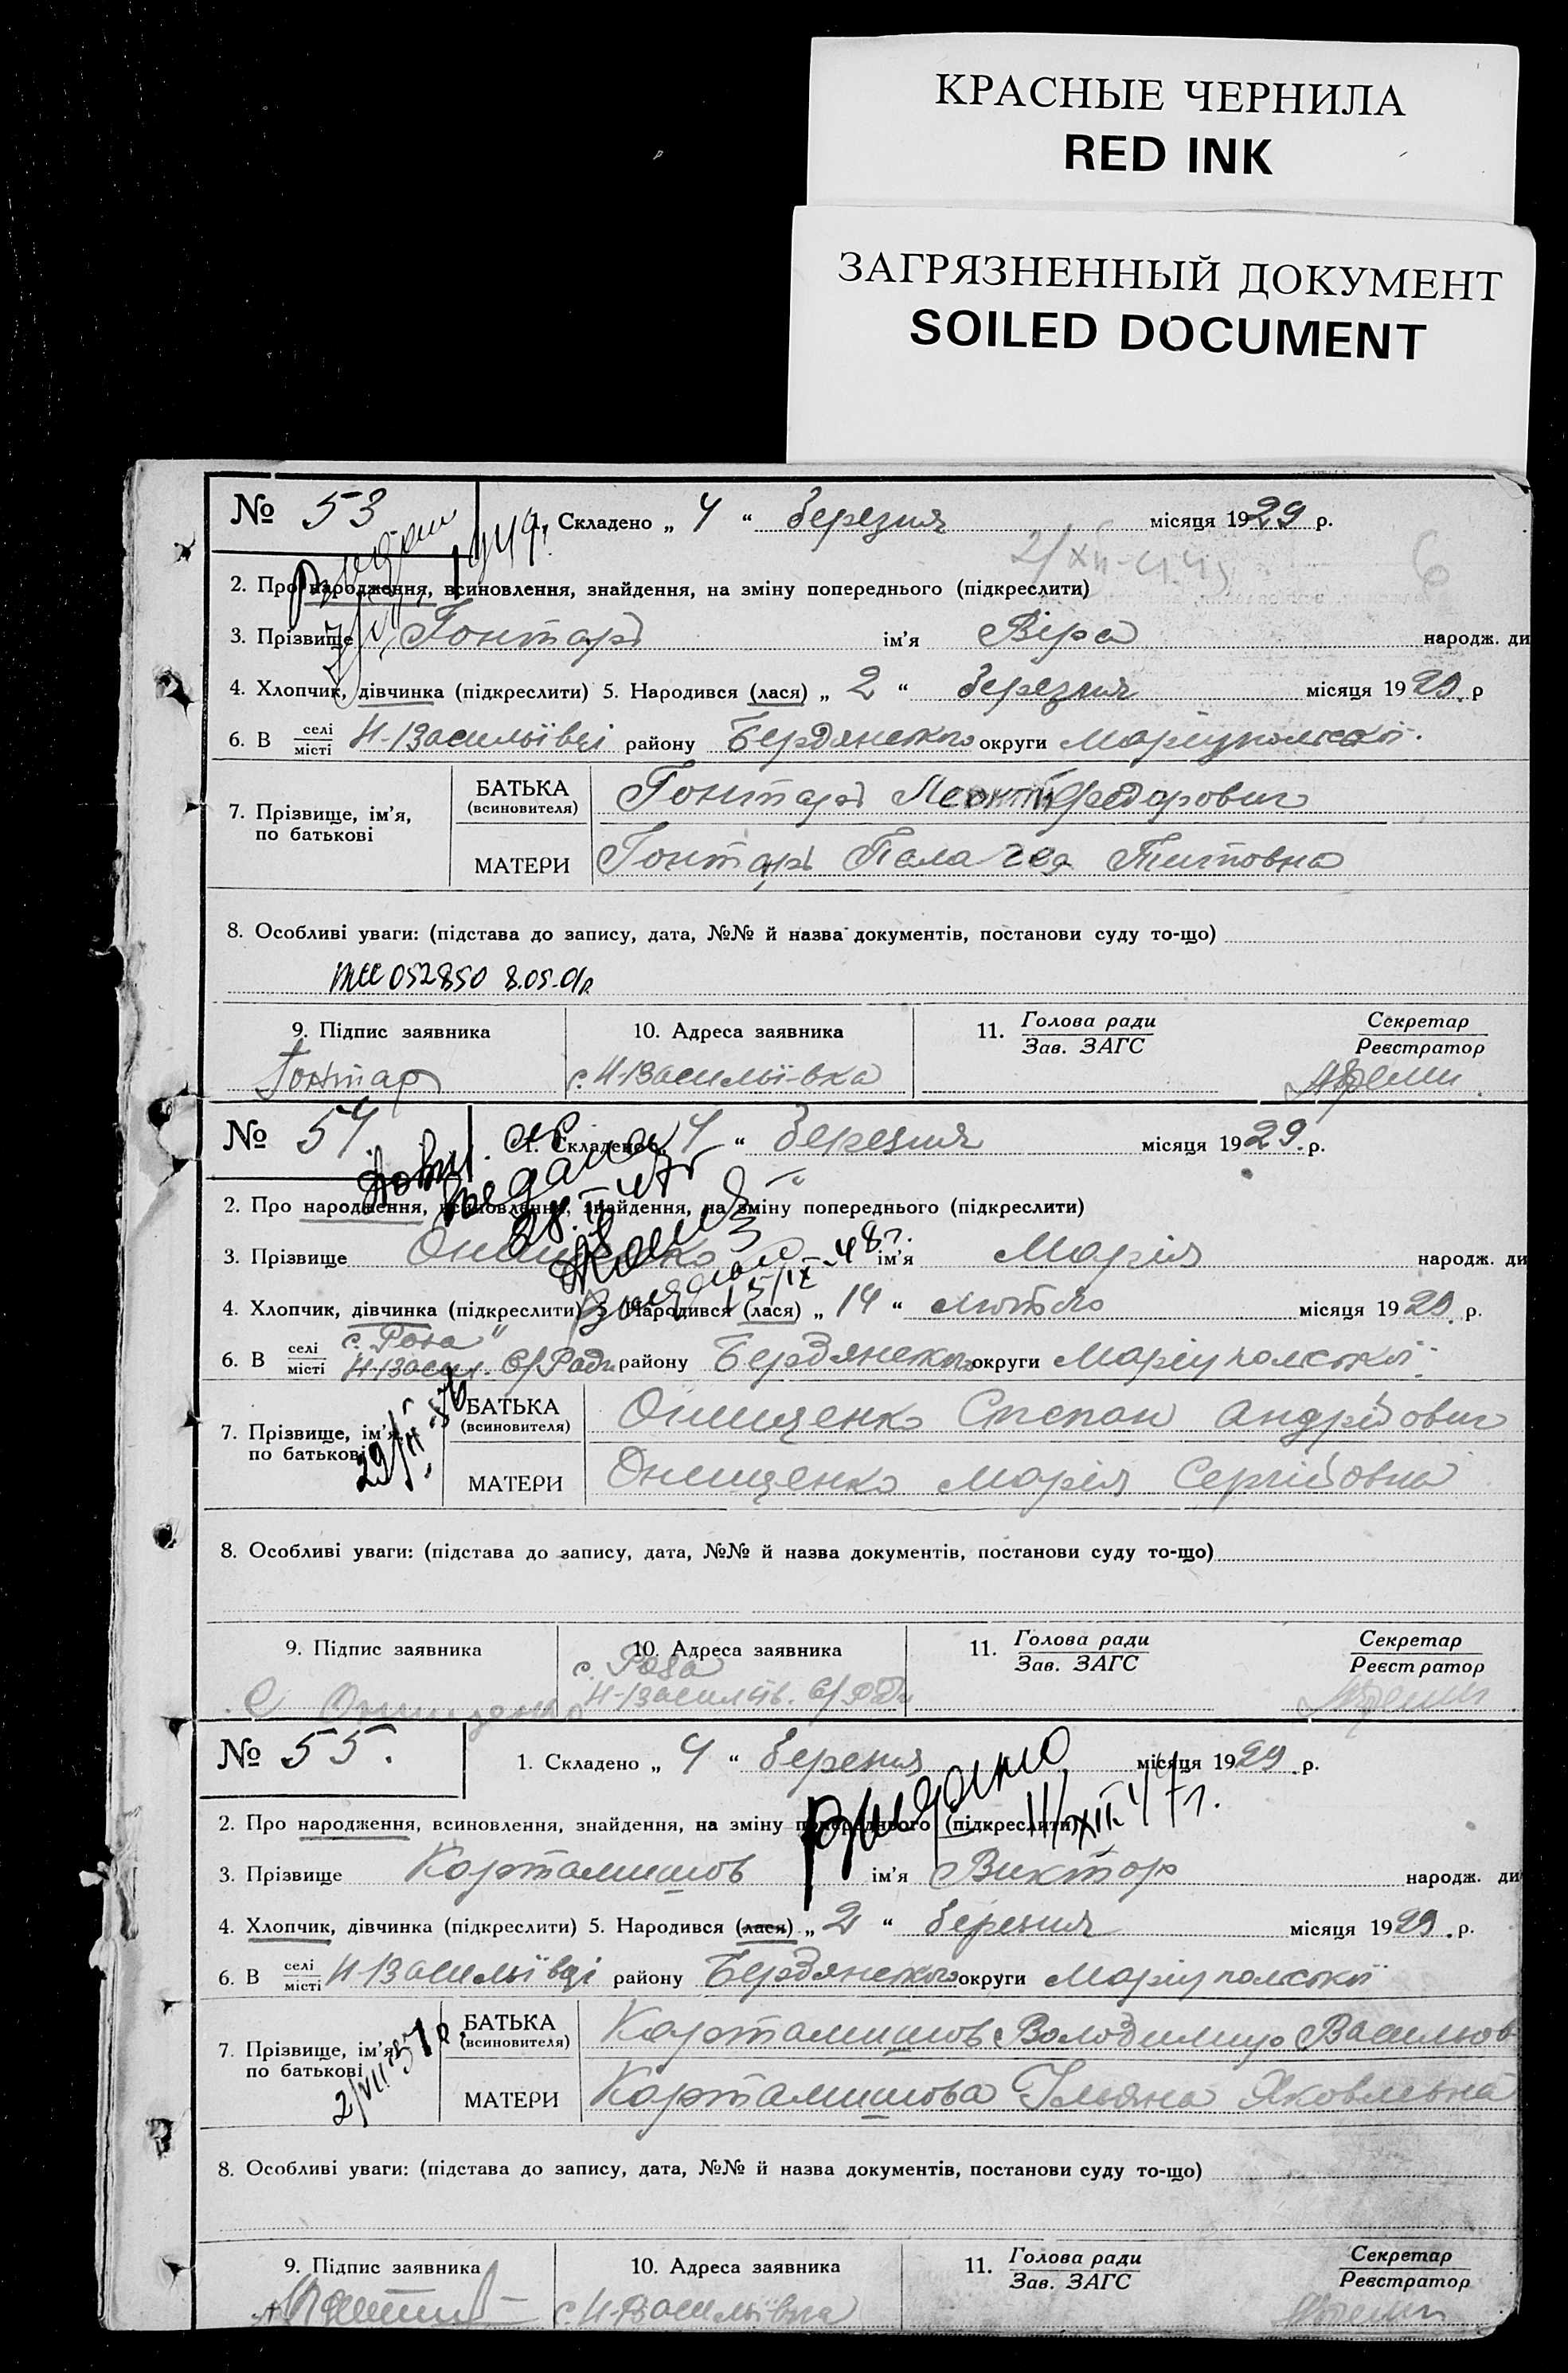 КРАСНЫЕ ЧЕРНИЛА
RED INK
ЗАГРЯЗНЕННЫЙ ДОКУМЕНТ
SOILED DOCUMENT
№ 53
1. Складено „ 4 “ березня місяця 1929 р.
2. Про народження, всиновлення, знайдення, на зміну попереднього (підкреслити)
3. Прізвище Гонтарь ім’я Віра народж. ди
4. Хлопчик, дівчинка (підкреслити) 5. Народився (лася) „ 2 “ березня місяця 1929 р
6. В селі місті Н-Васильївці району Бердянського округи Маріупольської.
7. Прізвище, ім’я, по батькові
БАТЬКА (всиновителя) Гонтарь Леонтій Федорович
МАТЕРИ Гонтарь Пелагея Титовна
8. Особливі уваги: (підстава до запису, дата, №№ й назва документів, постанови суду то-що)
052850 8.05.01р
9. Підпис заявника 10. Адреса заявника 11. Голова ради Зав. ЗАГС Секретар Реєстратор
Гонтар с. Н-Васильївка
№ 54
1. Складено „ 4 “ березня місяця 1929 р.
2. Про народження, всиновлення, знайдення, на зміну попереднього (підкреслити)
3. Прізвище Онищенко ім’я Марія народж. ди
4. Хлопчик, дівчинка (підкреслити) 5. Народився (лася) „ 14 “ лютого місяця 1929 р.
с. „Роза“
6. В селі місті Н-Васил. С/Ради району Бердянського округи Маріупольської.
7. Прізвище, ім’я, по батькові
БАТЬКА (всиновителя) Онищенко Степан Андрійович
МАТЕРИ Онищенко Марія Сергійовна
8. Особливі уваги: (підстава до запису, дата, №№ й назва документів, постанови суду то-що)
9. Підпис заявника 10. Адреса заявника 11. Голова ради Зав. ЗАГС Секретар Реєстратор
с. Роза
С Онищенко Н-Васильїв. С/Ради
№ 55.
1. Складено „ 4 “ березня місяця 1929 р.
Видано 11/XII-47 г.
2. Про народження, всиновлення, знайдення, на зміну попереднього (підкреслити)
3. Прізвище Картамишов ім’я Виктор народж. ди
4. Хлопчик, дівчинка (підкреслити) 5. Народився (лася) „ 2 “ березня місяця 1929 р.
6. В селі місті Н-Васильївці району Бердянського округи Маріупольської
7. Прізвище, ім’я, по батькові
БАТЬКА (всиновителя) Картамишов Володимир Васильов
МАТЕРИ Картамишова Ульяна Яковлевна
8. Особливі уваги: (підстава до запису, дата, №№ й назва документів, постанови суду то-що)
9. Підпис заявника 10. Адреса заявника 11. Голова ради Зав. ЗАГС Секретар Реєстратор
с. Н-Васильївка